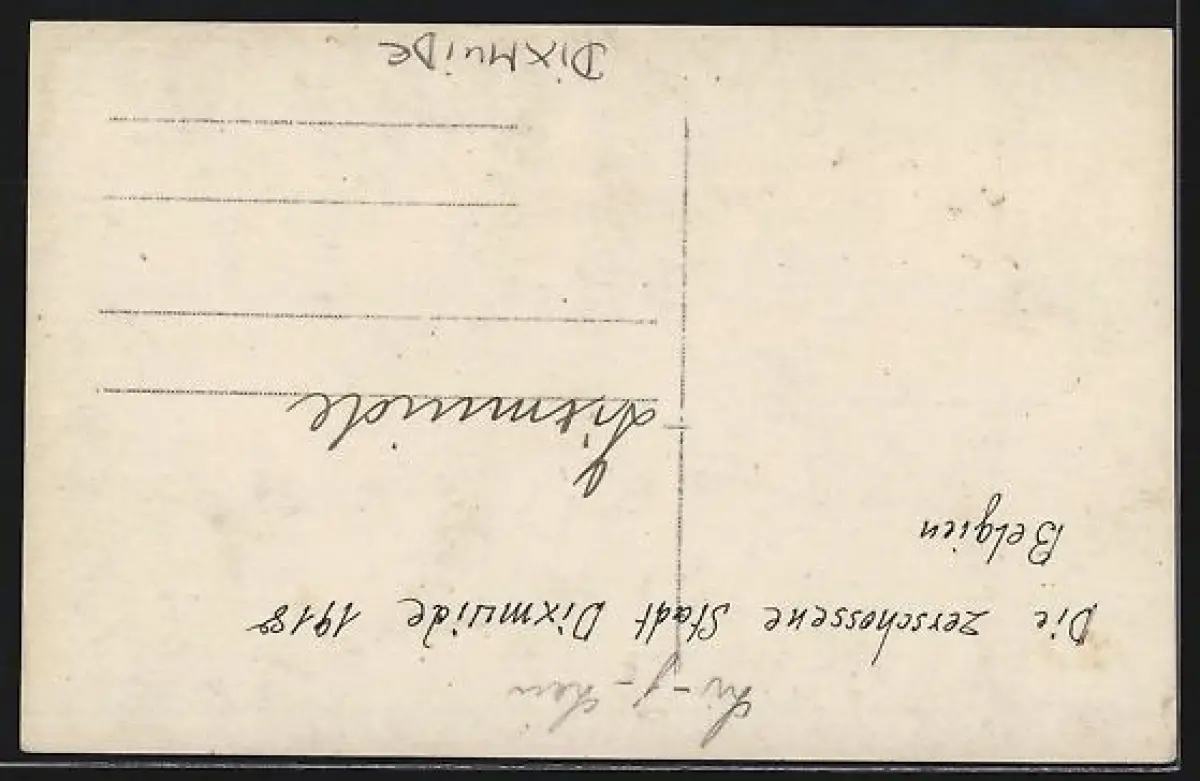 Die zerschossene Stadt Dixmuide 1918
Belgien
Dixmuide
DIXMUIDE